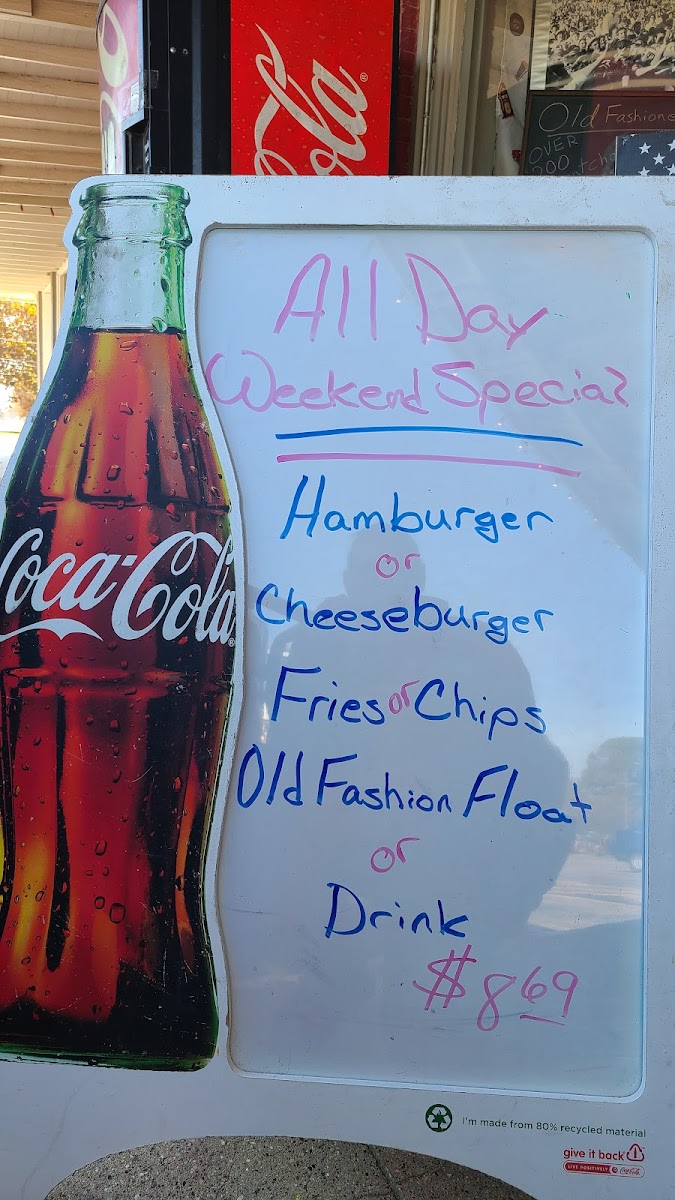 Cola
Old Fashione
OVER
200
All Day
Weekend Special
Hamburger
or
Cheeseburger
Fries or Chips
Old Fashion Float
or
Drink
$8.69
Coca-Cola
I'm made from 80% recycled material
give it back
LIVE POSITIVELY Coca-Cola